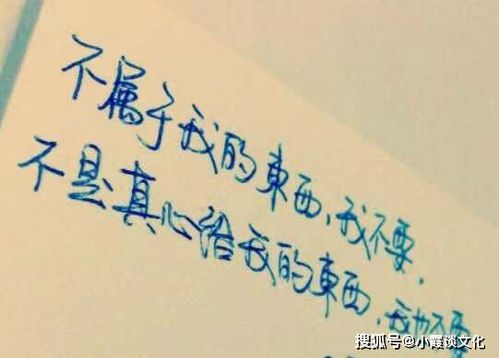 不属于我的東西,我不要,
不是真心给我的東西,我也不要
搜狐号@小霞谈文化